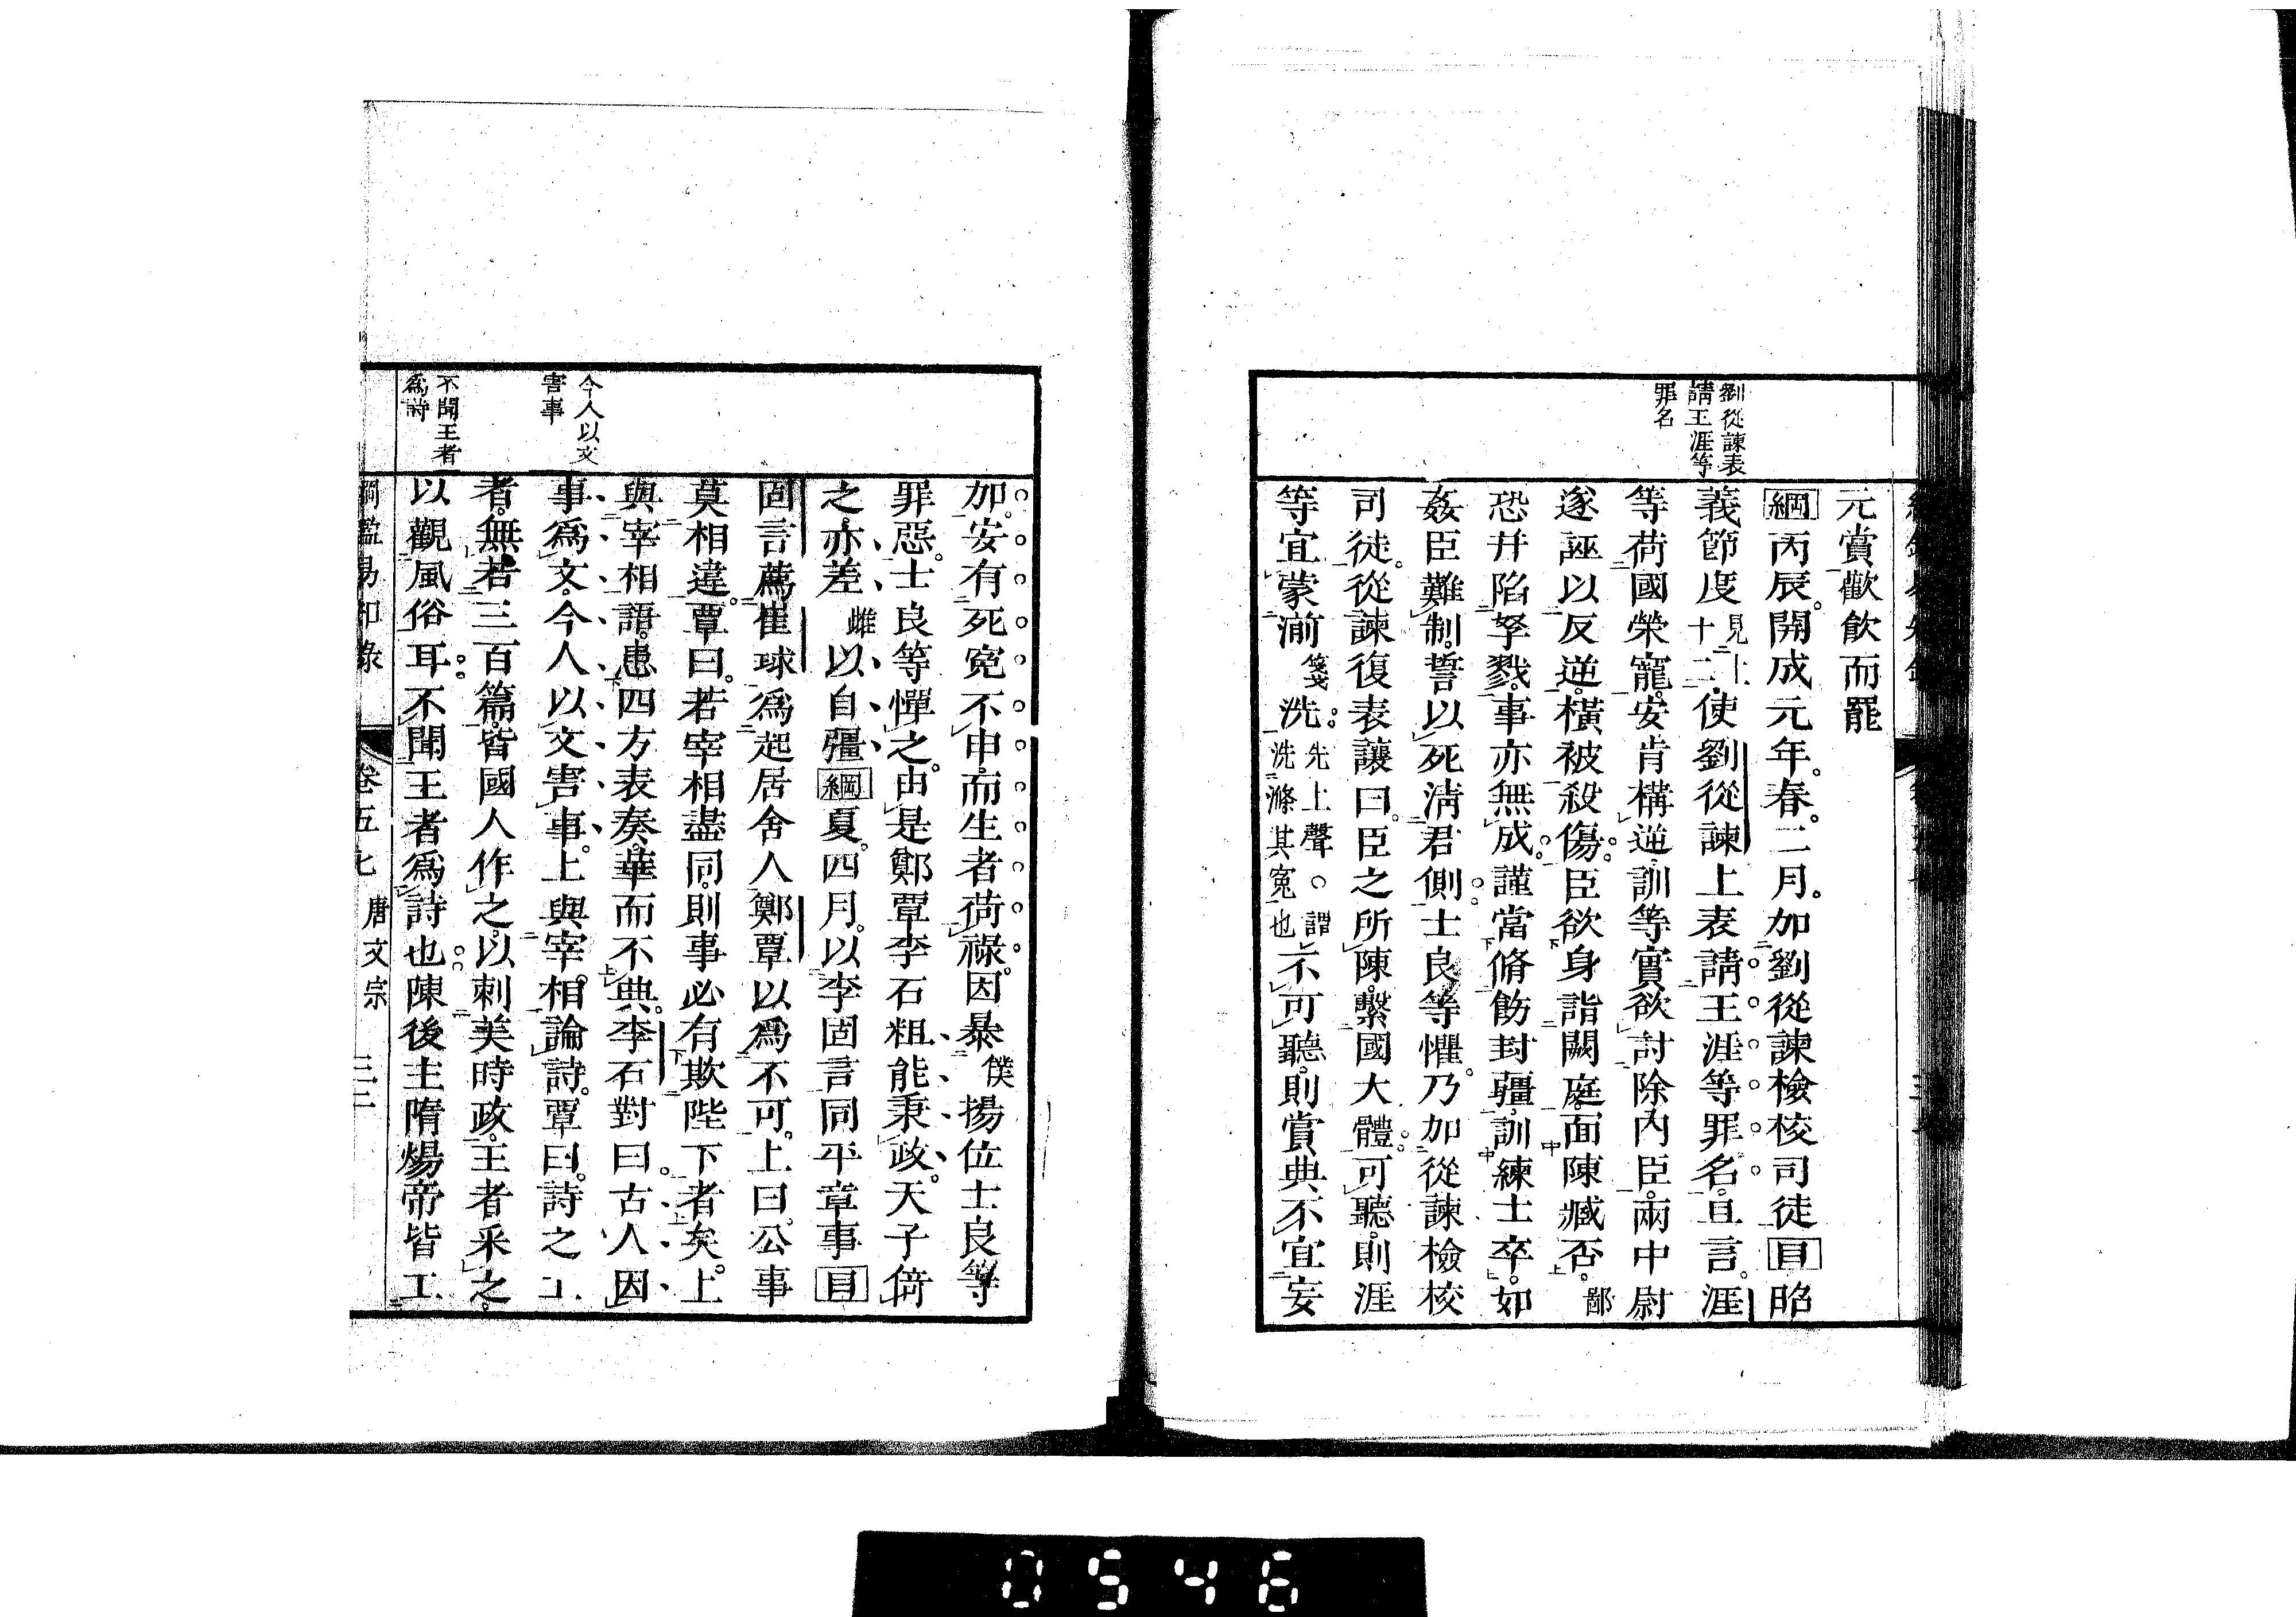 劉從諫表
請王涯等
罪名
元賞歡飲而罷
綱丙辰。開成元年。春。二月。加劉從諫檢校司徒目昭
義節度見上十二使劉從諫上表請王涯等罪名。且言。涯
等荷國榮寵。安肯構逆。訓等實欲討除內臣。兩中尉
遂誣以反逆。橫被殺傷。臣欲身詣闕庭。面陳臧否。鄙
恐并陷孥戮。事亦無成。謹當脩飭封疆。訓練士卒。如
姦臣難制。誓以死淸君側。士良等懼。乃加從諫檢校
司徒。從諫復表讓曰。臣之所陳。繫國大體。可聽。則涯
等宜蒙湔箋洗。先上聲。謂洗滌其寃也不可聽。則賞典不宜妄
加。安有死寃不申。而生者荷祿。因暴僕揚位士良等
罪惡。士良等憚之。由是鄭覃李石粗能秉政。天子倚
之。亦差雌以自彊綱夏。四月。以李固言同平章事目
固言薦崔球爲起居舍人鄭覃以爲不可。上曰。公事
莫相違。覃曰。若宰相盡同。則事必有欺陛下者矣。上
與宰相語。患四方表奏。華而不典。李石對曰。古人因
事爲文。今人以文害事。上與宰相論詩。覃曰。詩之工
者。無若三百篇。皆國人作之。以刺美時政。王者采之。
以觀風俗耳。不聞王者爲詩也。陳後主隋煬帝皆工
今人以文
害事
不聞王者
爲詩
綱鑑易知錄 卷五七 唐文宗
0546